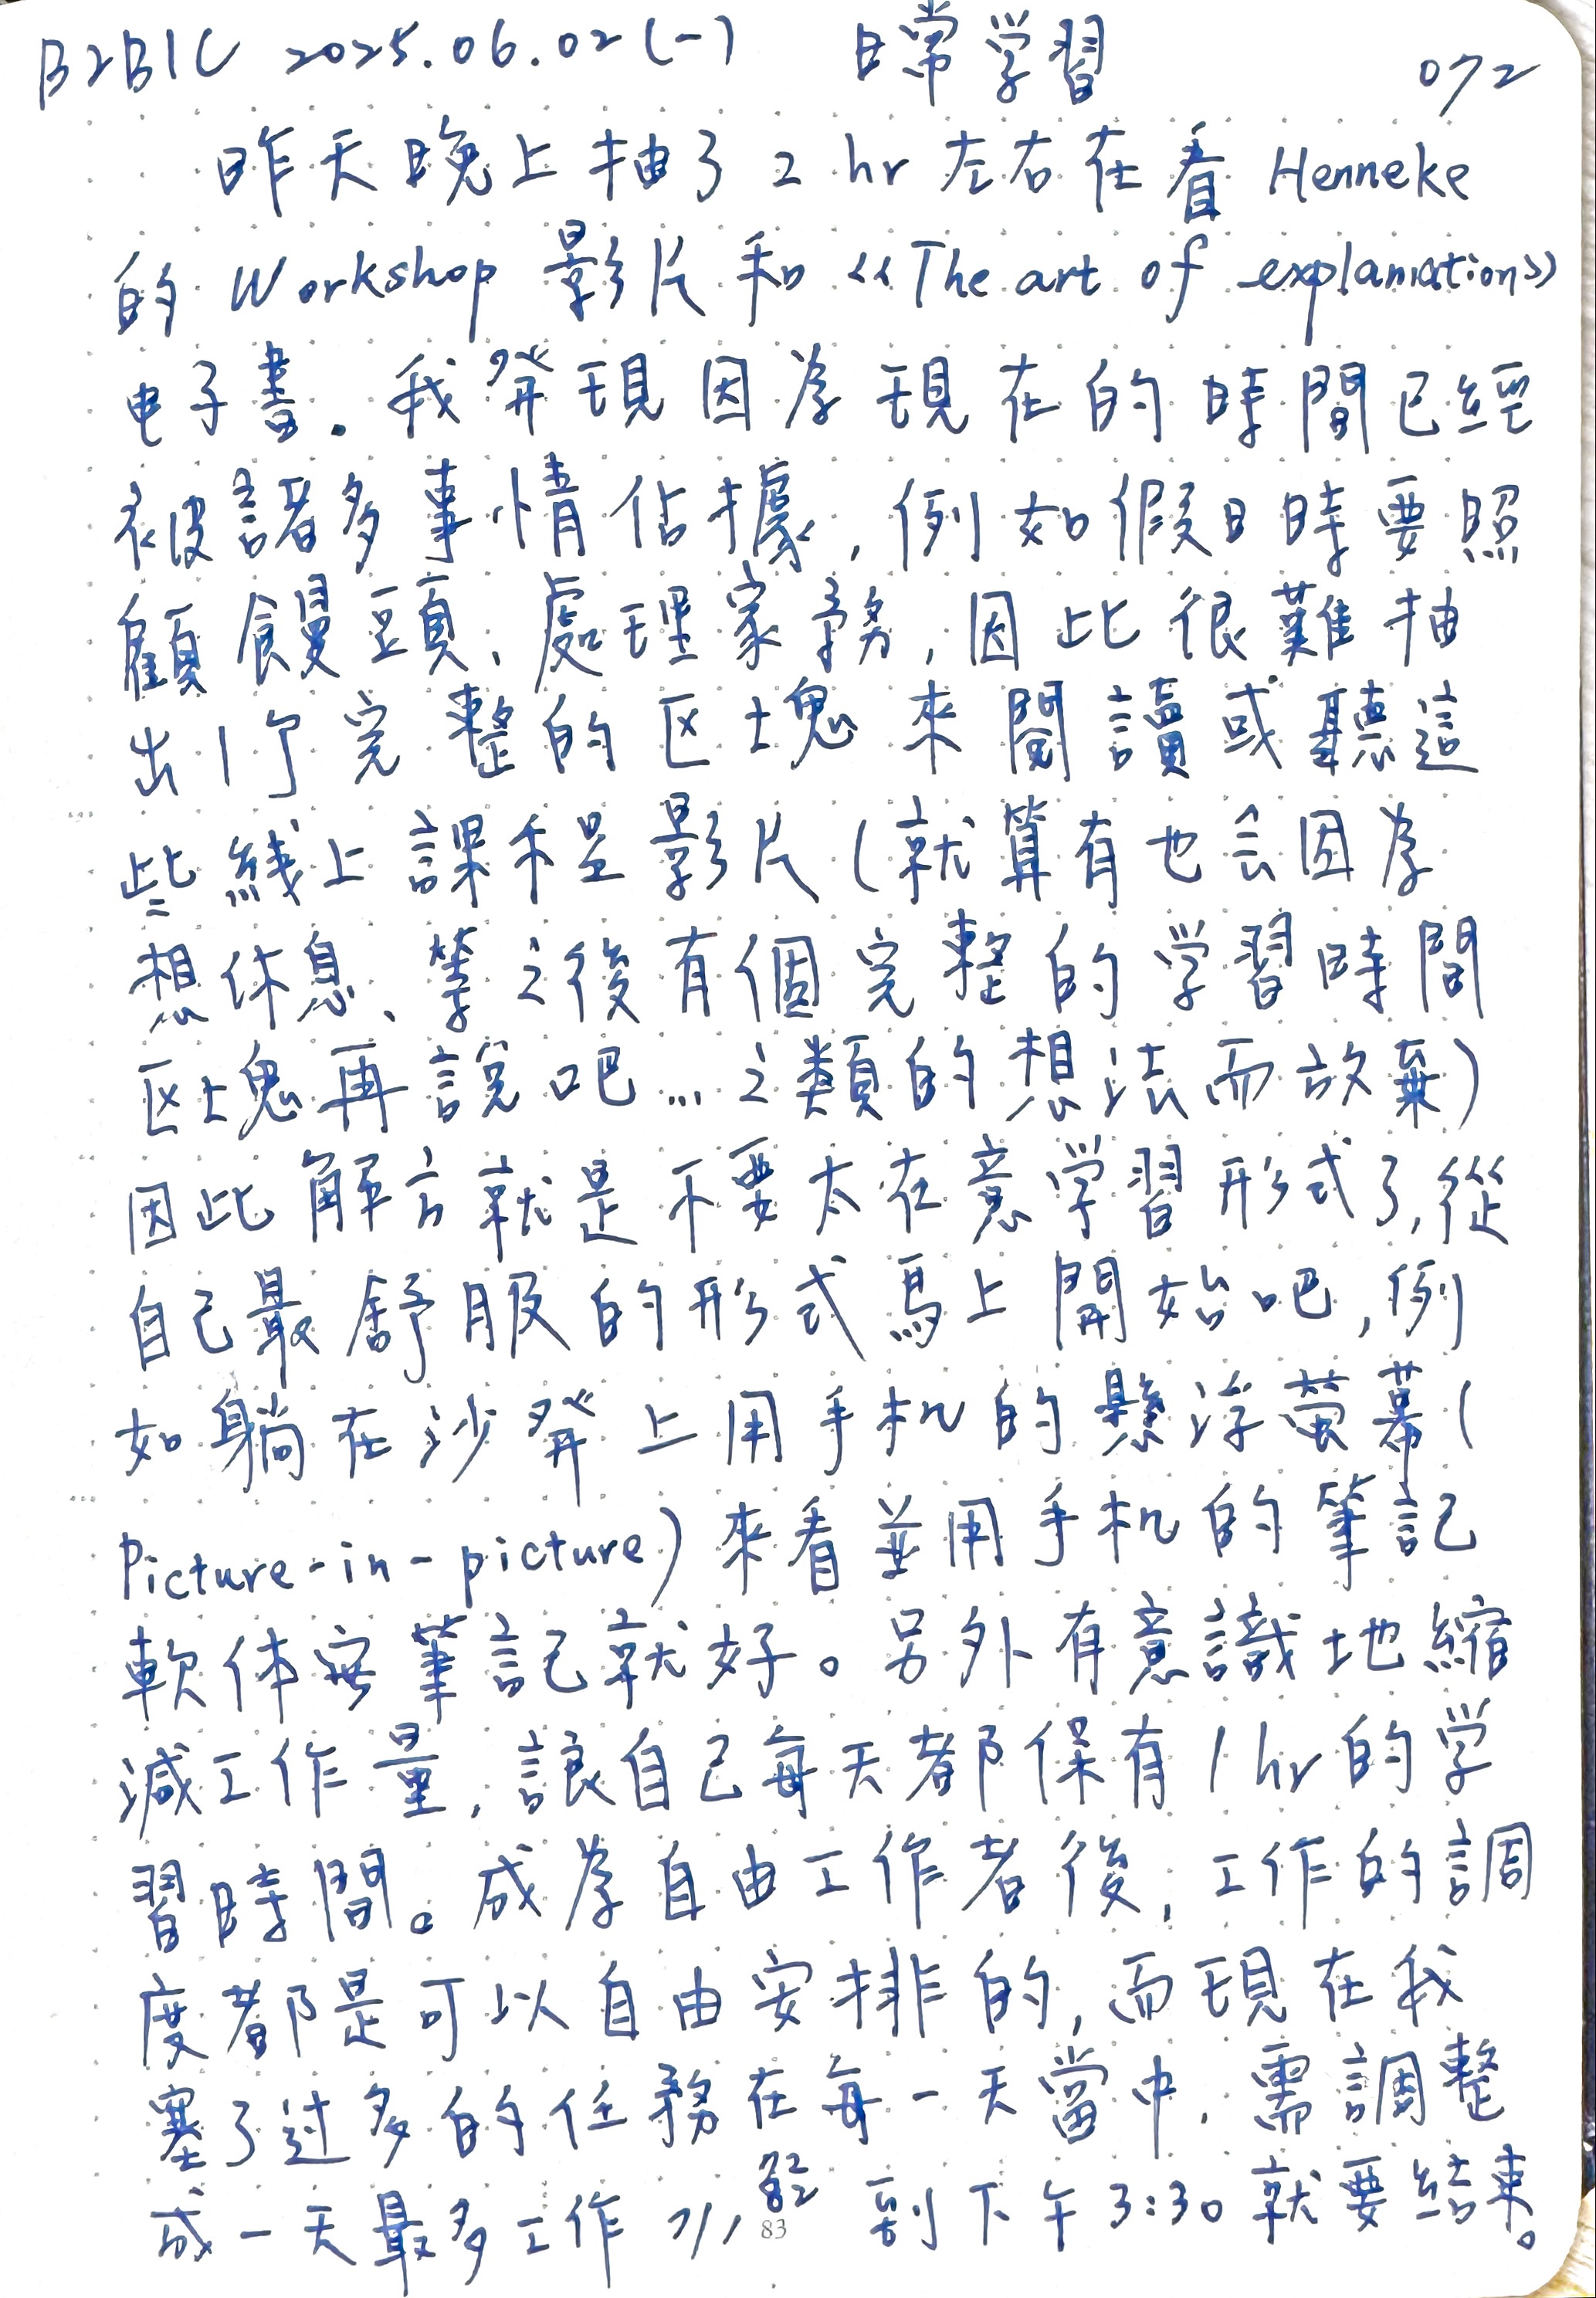 B2B1C 2025.06.02(一) 日常学習 072
昨天晚上抽了2hr左右在看Henneke
的Workshop影片和《The art of explanation》
电子書。我発現因為現在的時間已經
被諸多事情佔據，例如假日時要照
顧饅頭、處理家務，因此很難抽
出1个完整的区塊來閱讀或聽這
些綫上課和是影片(就算有也会因為
想休息、等之後有個完整的学習時間
区塊再說吧...之類的想法而放棄)
因此解方就是不要太在意学習形式了，從
自己最舒服的形式馬上開始吧，例
如躺在沙発上用手机的懸浮螢幕(
Picture-in-picture)來看並用手机的筆記
軟体來筆記就好。另外有意識地縮
減工作量，讓自己每天都保有1hr的学
習時間。成為自由工作者後，工作的調
度都是可以自由安排的，而現在我
塞了过多的任務在每一天當中，需調整
成一天最多工作 到下午3:30就要結束。
83